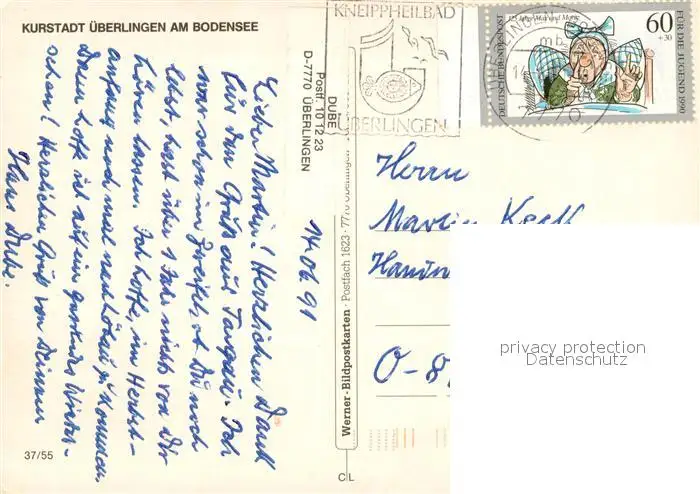 KURSTADT ÜBERLINGEN AM BODENSEE
KNEIPPHEILBAD
ÜBERLINGEN
125 Jahre Max und Moritz
60
+30
DEUTSCHE BUNDESPOST
FÜR DIE JUGEND 1990
DUBE
Postf. 10 12 23
D-7770 ÜBERLINGEN
14.06.91
Lieber Martin! Herzlichen Dank
für den Gruß aus Torgau. Ich
war schon im Zweifel, ob Du noch
lebst, hast über 1 Jahr nichts von Dir
hören lassen. Ich hoffe, im Herbst-
anfang noch mal nach Löbau zu kommen.
Dann hoffe ich auf ein Wieder-
sehen! Herzlichen Gruß von Deinem
Hans Dube.
Werner-Bildpostkarten · Postfach 1623 · 7770 Überlingen
Herrn
Martin
O-8
37/55
C L
privacy protection
Datenschutz